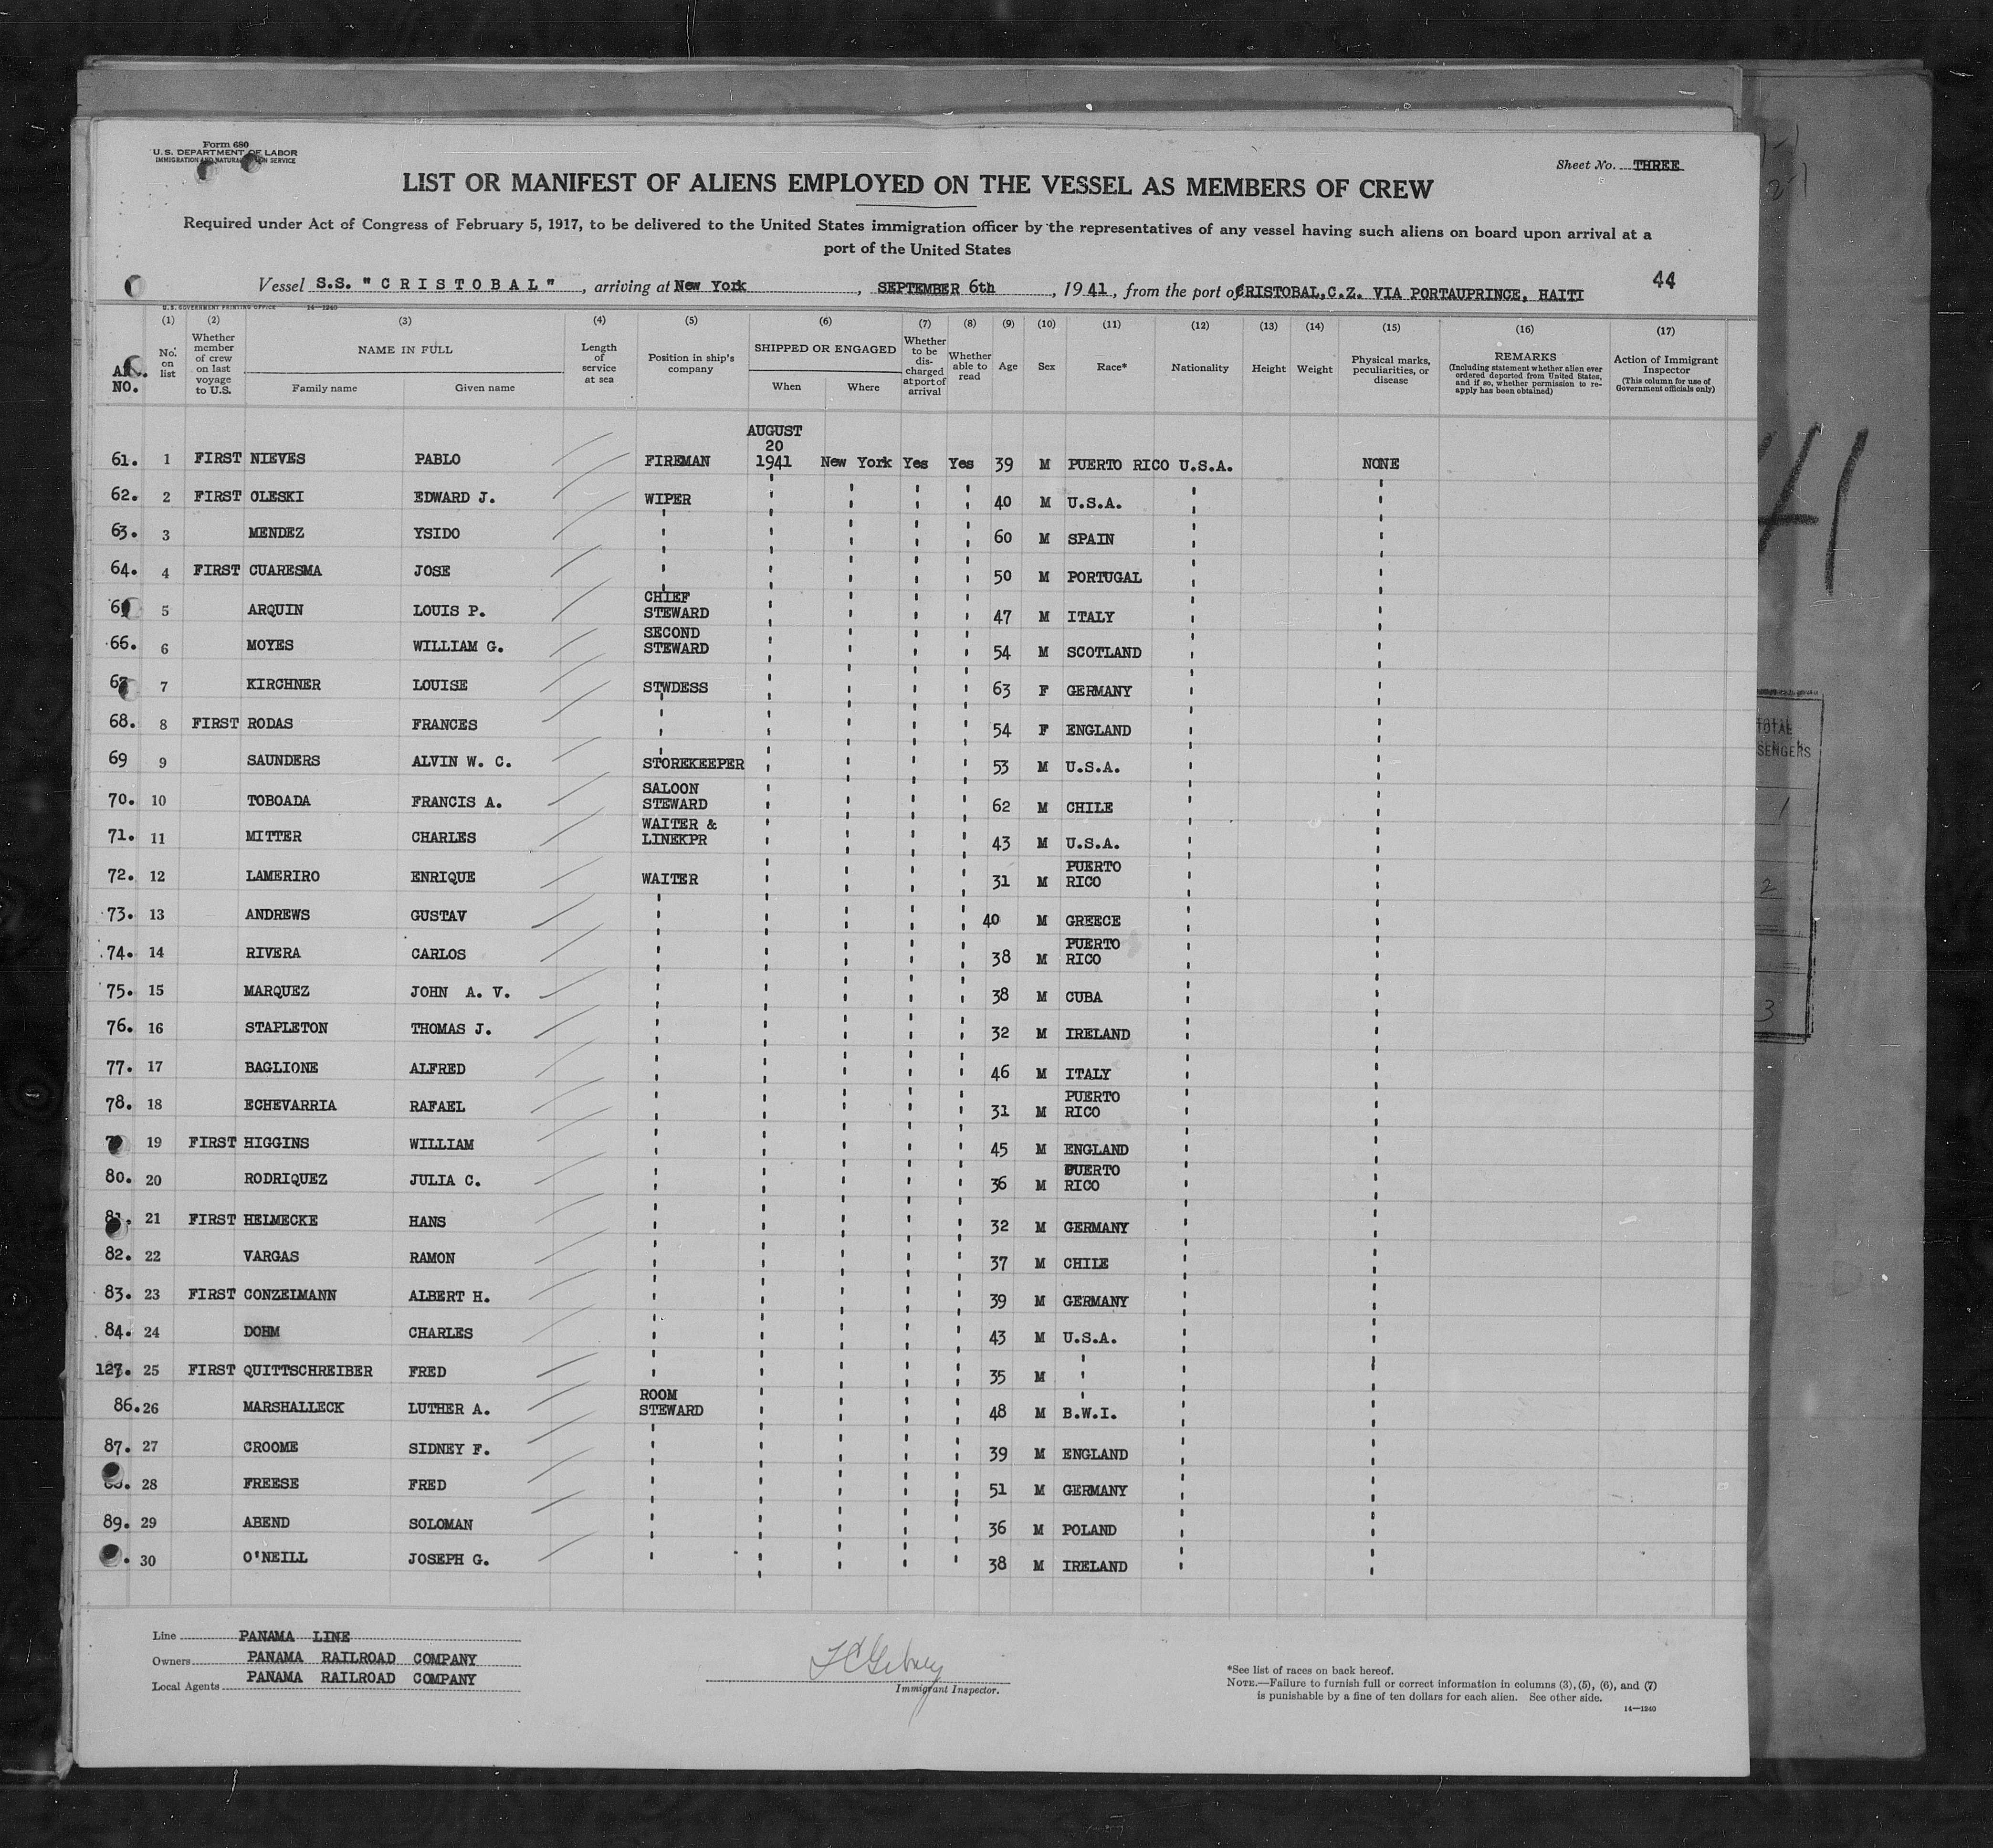 Form 680
U.S. DEPARTMENT OF LABOR
IMMIGRATION AND NATURALIZATION SERVICE
Sheet No. THREE
LIST OR MANIFEST OF ALIENS EMPLOYED ON THE VESSEL AS MEMBERS OF CREW
Required under Act of Congress of February 5, 1917, to be delivered to the United States immigration officer by the representatives of any vessel having such aliens on board upon arrival at a
port of the United States
44
Vessel S.S. "CRISTOBAL", arriving at New York, SEPTEMBER 6th, 1941, from the port of CRISTOBAL,C.Z. VIA PORTAUPRINCE, HAITI
U.S. GOVERNMENT PRINTING OFFICE 14—1240
(1) (2) (3) (4) (5) (6) (7) (8) (9) (10) (11) (12) (13) (14) (15) (16) (17)
NO.
No. on list
Whether member of crew on last voyage to U.S.
NAME IN FULL
Family name
Given name
Length of service at sea
Position in ship's company
SHIPPED OR ENGAGED
When
Where
Whether to be discharged at port of arrival
Whether able to read
Age
Sex
Race*
Nationality
Height
Weight
Physical marks, peculiarities, or disease
REMARKS
(Including statement whether alien ever ordered deported from United States, and if so, whether permission to re-apply has been obtained)
Action of Immigrant Inspector
(This column for use of Government officials only)
AUGUST
20
61. 1 FIRST NIEVES PABLO FIREMAN 1941 New York Yes Yes 39 M PUERTO RICO U.S.A. NONE
62. 2 FIRST OLESKI EDWARD J. WIPER " " " " 40 M U.S.A. " "
63. 3 MENDEZ YSIDO " " " " " 60 M SPAIN " "
64. 4 FIRST CUARESMA JOSE " " " " " 50 M PORTUGAL " "
5 ARQUIN LOUIS P. CHIEF STEWARD " " " " 47 M ITALY " "
66. 6 MOYES WILLIAM G. SECOND STEWARD " " " " 54 M SCOTLAND " "
7 KIRCHNER LOUISE STWDESS " " " " 63 F GERMANY " "
68. 8 FIRST RODAS FRANCES " " " " " 54 F ENGLAND " "
69 9 SAUNDERS ALVIN W. C. STOREKEEPER " " " " 53 M U.S.A. " "
70. 10 TOBOADA FRANCIS A. SALOON STEWARD " " " " 62 M CHILE " "
71. 11 MITTER CHARLES WAITER & LINEKPR " " " " 43 M U.S.A. " "
72. 12 LAMERIRO ENRIQUE WAITER " " " " 31 M PUERTO RICO " "
73. 13 ANDREWS GUSTAV " " " " " 40 M GREECE " "
74. 14 RIVERA CARLOS " " " " " 38 M PUERTO RICO " "
75. 15 MARQUEZ JOHN A. V. " " " " " 38 M CUBA " "
76. 16 STAPLETON THOMAS J. " " " " " 32 M IRELAND " "
77. 17 BAGLIONE ALFRED " " " " " 46 M ITALY " "
78. 18 ECHEVARRIA RAFAEL " " " " " 31 M PUERTO RICO " "
19 FIRST HIGGINS WILLIAM " " " " " 45 M ENGLAND " "
80. 20 RODRIQUEZ JULIA C. " " " " " 36 M PUERTO RICO " "
81. 21 FIRST HELMECKE HANS " " " " " 32 M GERMANY " "
82. 22 VARGAS RAMON " " " " " 37 M CHILE " "
83. 23 FIRST CONZELMANN ALBERT H. " " " " " 39 M GERMANY " "
84. 24 DOHM CHARLES " " " " " 43 M U.S.A. " "
127. 25 FIRST QUITTSCHREIBER FRED " " " " " 35 M " " "
86. 26 MARSHALLECK LUTHER A. ROOM STEWARD " " " " 48 M B.W.I. " "
87. 27 CROOME SIDNEY F. " " " " " 39 M ENGLAND " "
28 FREESE FRED " " " " " 51 M GERMANY " "
89. 29 ABEND SOLOMAN " " " " " 36 M POLAND " "
30 O'NEILL JOSEPH G. " " " " " 38 M IRELAND " "
Line PANAMA LINE
Owners PANAMA RAILROAD COMPANY
Local Agents PANAMA RAILROAD COMPANY
Immigrant Inspector.
*See list of races on back hereof.
NOTE.—Failure to furnish full or correct information in columns (3), (5), (6), and (7)
is punishable by a fine of ten dollars for each alien. See other side.
14—1240
TOTAL
1
2
3